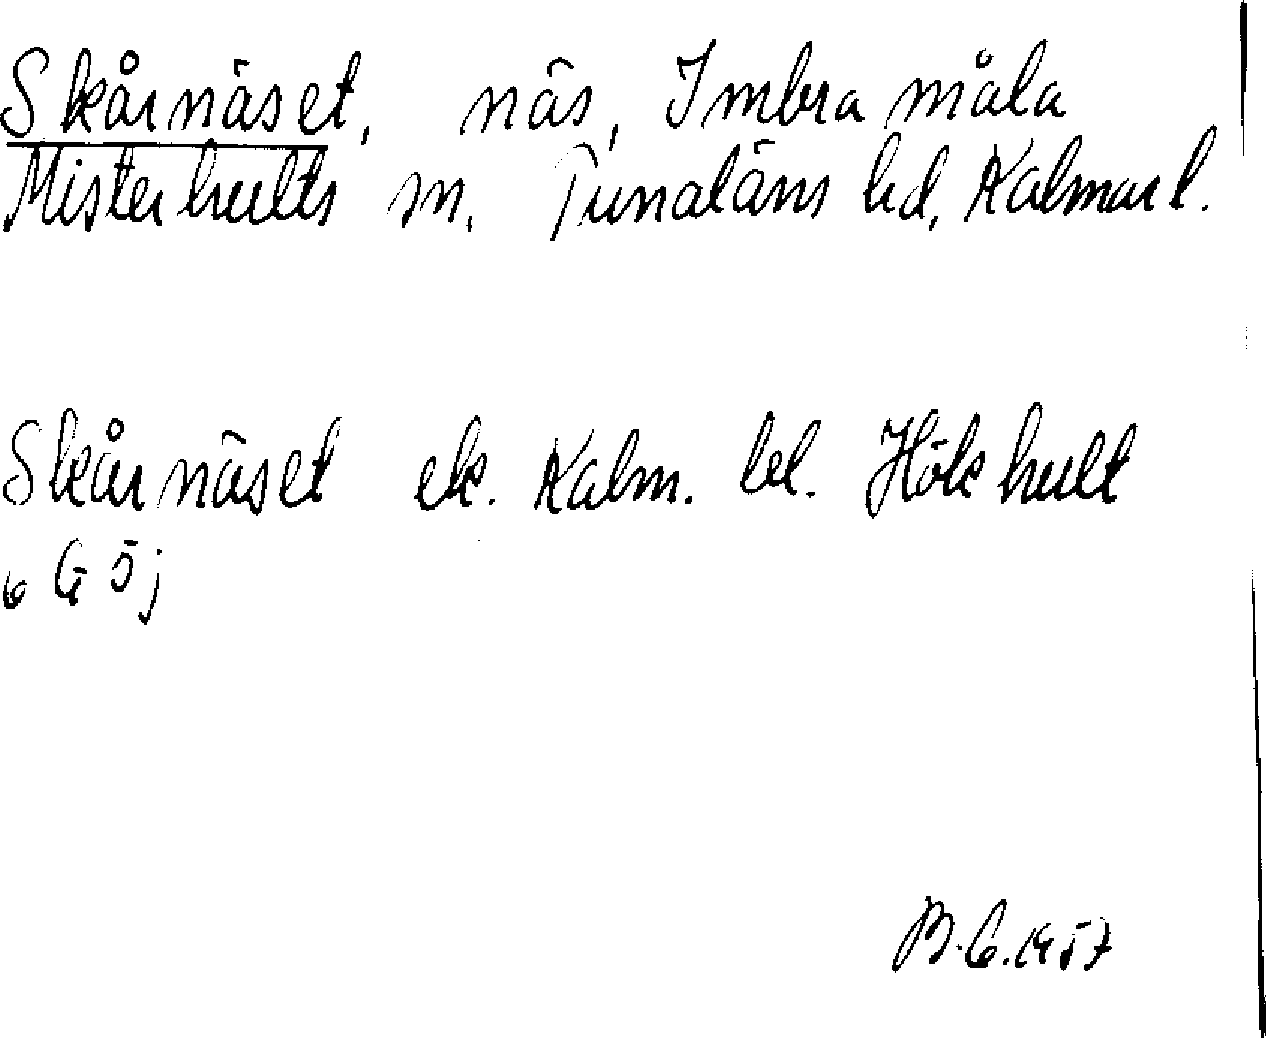 Skårnäset, näs, Imbramåla
Misterhults sn, Tunaläns hd, Kalmar l.
Skårnäset ek. Kalm. bl. Hökhult
6 G 5 j
B.G. 1957